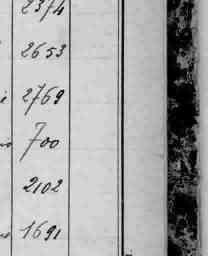 2374
2653
2769
700
2102
1691